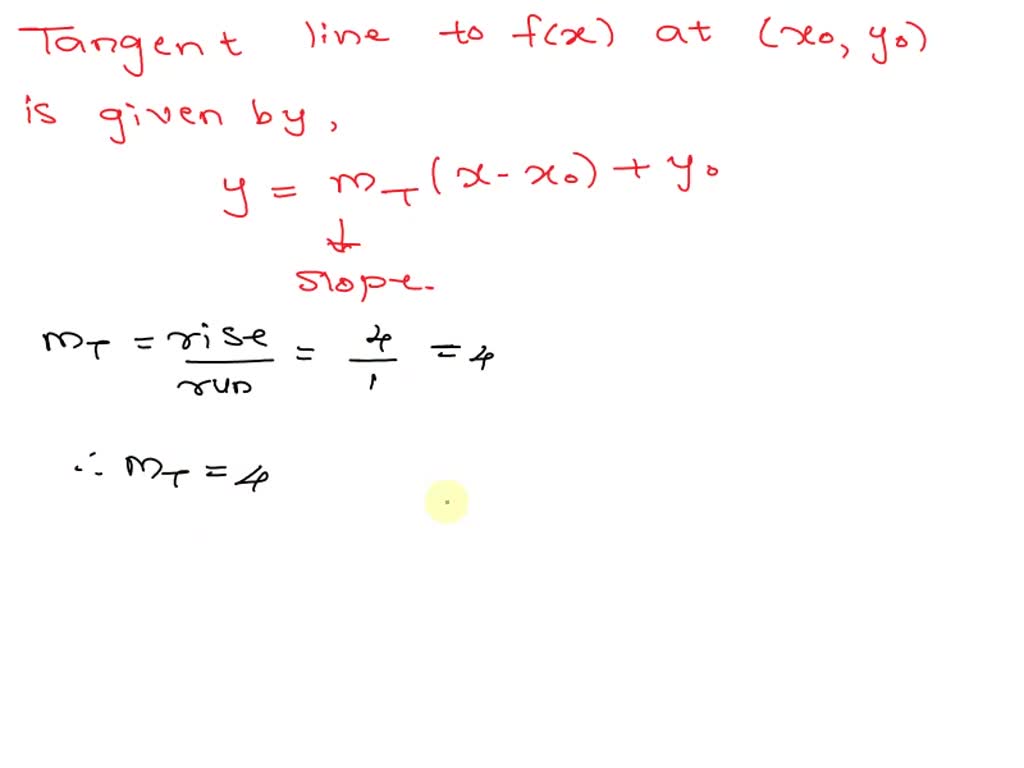 Tangent line to f(x) at (x₀, y₀)
is given by,
y = m_T (x - x₀) + y₀
↓
slope.
m_T = rise/run = 4/1 = 4
∴ m_T = 4